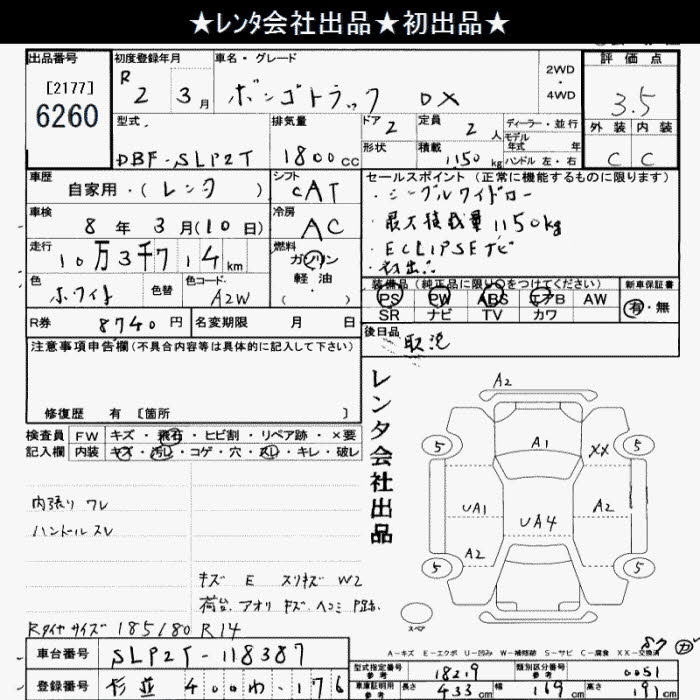 ★レンタ会社出品★初出品★
出品番号
[2177]
6260
初度登録年月
R 2 3月
車名・グレード
ボンゴトラック DX
2WD
・
4WD
評価点
3.5
外装 内装
C C
型式
DBF-SLP2T
排気量
1800cc
ドア 2
形状
定員 2人
積載 1150kg
ディーラー・並行
モデル
年式 年
ハンドル 左・右
車歴
自家用・(レンタ)
シフト
CAT
車検
8年3月(10日)
冷房
AC
走行
10万3千714km
燃料
ガソリン
軽油
( )
色
ホワイト
色替
色コード
A2W
R券 8740円
名変期限 月 日
セールスポイント(正常に機能するものに限ります)
・シングルワイドロー
・最大積載量1150kg
・ECLIPSEナビ
・初出品
装備品(純正品に限り○をつけてください)
PS PW ABS エアB AW
SR ナビ TV カワ
新車保証書
有・無
後日品
取説
注意事項申告欄(不具合内容等は具体的に記入して下さい)
修復歴 有 [箇所 ]
検査員
記入欄
FW キズ・飛石・ヒビ割・リペア跡・×要
内装 キズ・汚レ・コゲ・穴・スレ・キレ・破レ
内張り ワレ
ハンドル スレ
キズ E スリキズ W2
荷台 アオリ キズ ヘコミ
Rタイヤサイズ 185/80 R14
レンタ会社出品
A2
5
A1
XX
5
UA1
UA4
A2
A2
5
5
スペア
A-キズ E-エクボ U-凹み W-補修跡 S-サビ C-腐食 XX-交換済
車台番号 SLP2T-118387
登録番号 杉並 400わ・176
型式指定番号
参考
18219
類別区分番号
参考
0051
車庫証明用
参考
長さ 433cm 幅 169cm 高さ 191cm